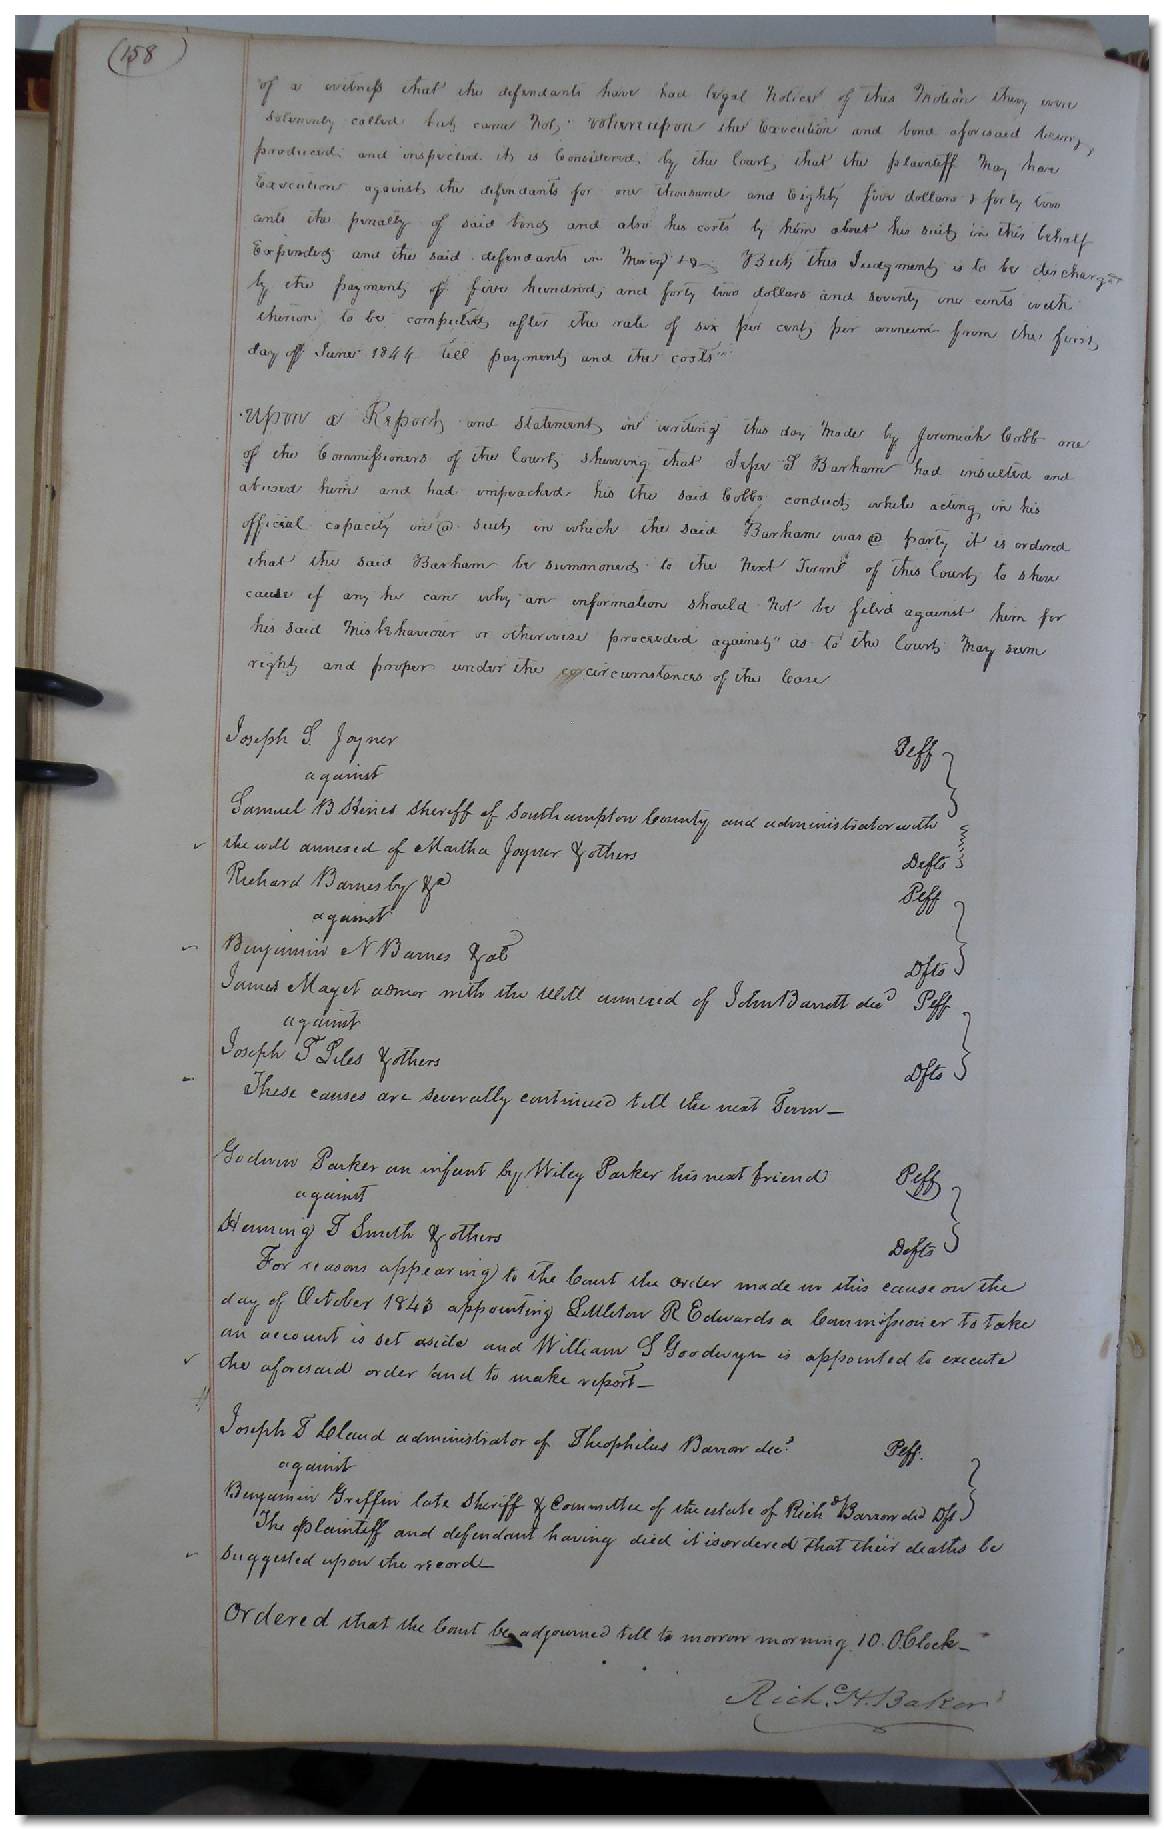 (158)
of a witness that the defendants have had legal Notice of this Motion they were
solemnly called but came Not; Whereupon the Execution and bond aforesaid being
produced and inspected it is Considered by the Court that the plaintiff May have
Execution against the defendants for one thousand and Eighty five dollars & forty two
cents the penalty of said bond and also his costs by him about his suit in this behalf
Expended and the said defendants in Mercy &c But this Judgment is to be discharged
by the payment of five hundred and forty two dollars and seventy one cents with
thereon to be computed after the rate of six per cent per annum from the first
day of June 1844 till payment and the costs
Upon a Report and statement in writing this day Made by Jeremiah Cobb one
of the Commissioners of the Court shewing that Jesse S Barham had insulted and
abused him and had impeached his the said Cobbs conduct while acting in his
official capacity in @ suit in which the said Barham was @ party it is ordered
that the said Barham be summoned to the Next Term of this Court to shew
cause if any he can why an information should Not be filed against him for
his said Misbehaviour or otherwise proceeded against as to the Court May seem
right and proper under the circumstances of the Case
Joseph S. Joyner Peff
against
Samuel B Hines Sheriff of Southampton County and administrator with
the will annexed of Martha Joyner & others Defts
Richard Barnes by &c Peff
against
Benjamin N Barnes & al Dfts
James Maget admor with the Will annexed of John Barrett decd Peff
against
Joseph T Liles & others Dfts
These causes are severally continued till the next Term—
Godwin Parker an infant by Wiley Parker his next friend Peff
against
Henning T Smith & others Defts
For reasons appearing to the Court the order made in this cause on the
day of October 1843 appointing Littleton R Edwards a Commissioner to take
an account is set aside and William S Goodwyn is appointed to execute
the aforesaid order and to make report—
Joseph T Claud administrator of Theophilus Barrow decd Peff.
against
Benjamin Griffin late Sheriff & Committee of the estate of Richd Barrow decd Dft
The plaintiff and defendant having died it is ordered that their deaths be
suggested upon the record—
Ordered that the Court be adjourned till to morrow morning 10 O.Clock—
Rich. H. Baker